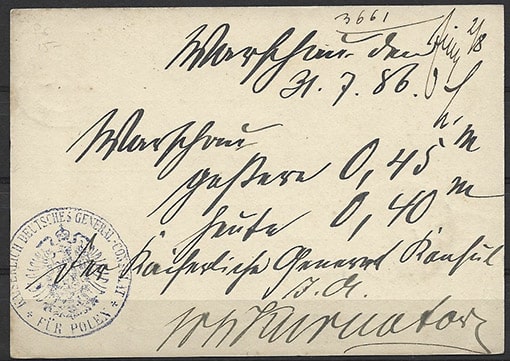 3661
2/8
Warschau, den
31. 7. 86.
Warschau
gestern 0,45 m
heute 0,40 m
Der Kaiserliche General Konsul
I. A.
KAISERLICH DEUTSCHES GENERAL-CONSULAT
* FÜR POLEN *